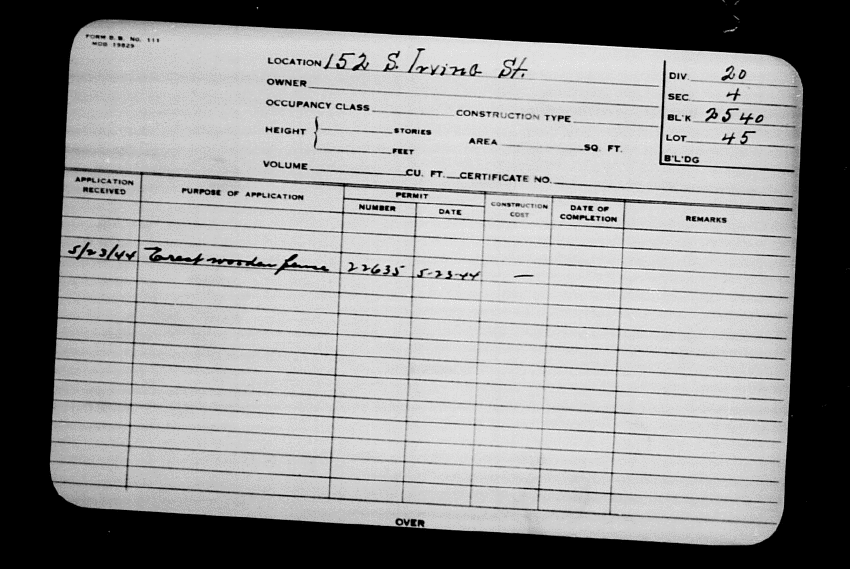 FORM B. B. NO. 111
MOD 19829
LOCATION 152 S. Irving St.
OWNER
OCCUPANCY CLASS CONSTRUCTION TYPE
HEIGHT { STORIES
FEET
AREA SQ. FT.
VOLUME CU. FT. CERTIFICATE NO.
DIV. 20
SEC 4
BL'K 2540
LOT 45
B'L'DG
APPLICATION RECEIVED PURPOSE OF APPLICATION PERMIT NUMBER DATE CONSTRUCTION COST DATE OF COMPLETION REMARKS
5/23/44 Erect wooden fence 22635 5-23-44 —
OVER